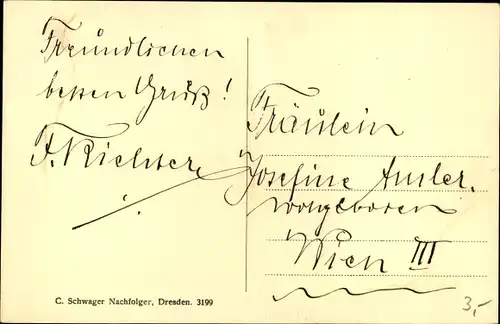 Freundlichen
besten Gruß!
F. Richter
Fräulein
Josefine Amler.
wohlgeboren
Wien III
C. Schwager Nachfolger, Dresden. 3199
3,-